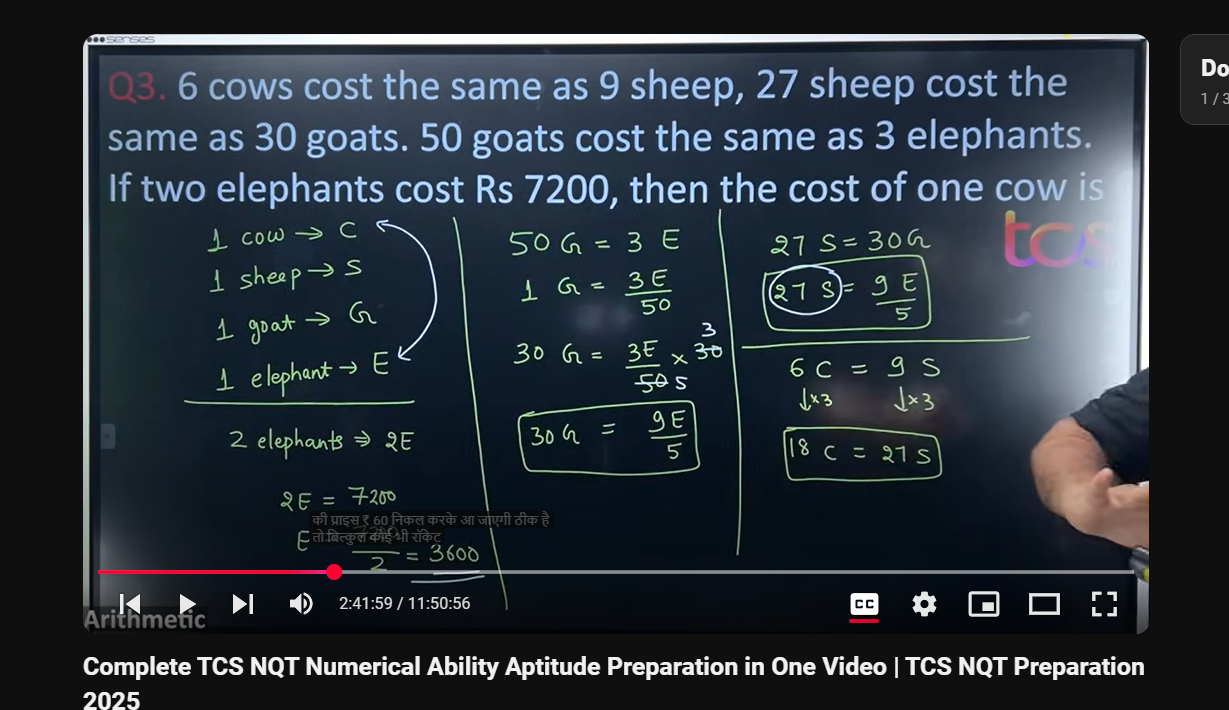 senses
Q3. 6 cows cost the same as 9 sheep, 27 sheep cost the
same as 30 goats. 50 goats cost the same as 3 elephants.
If two elephants cost Rs 7200, then the cost of one cow is
tcs
1 cow → C
1 sheep → S
1 goat → G
1 elephant → E
2 elephants ⇒ 2E
2E = 7200
E
2 = 3600
50 G = 3 E
1 G = 3E/50
30 G = 3E/50 × 30
3
5
30 G = 9E/5
27 S = 30G
27 S = 9 E/5
6 C = 9 S
↓×3 ↓×3
18 C = 27 S
की प्राइस ₹ 60 निकल करके आ जाएगी ठीक है
तो बिल्कुल कोई भी रॉकेट
2:41:59 / 11:50:56
CC
Arithmetic
Complete TCS NQT Numerical Ability Aptitude Preparation in One Video | TCS NQT Preparation
2025
Do
1 / 3